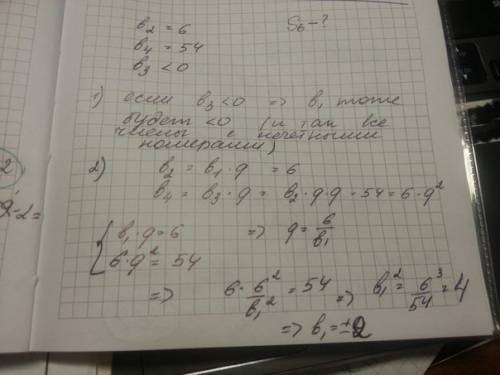 b₂ = 6
S₆ - ?
b₄ = 54
b₃ < 0
1) если b₃<0 => b₁ тоже
будет <0 (и так все
члены с нечетными
номерами)
2) b₂ = b₁ · q = 6
b₄ = b₃ · q = b₂ · q · q = 54 = 6 · q²
{ b₁ · q = 6 => q = 6/b₁
6 · q² = 54
=> 6 · 6²/b₁² = 54 => b₁² = 6³/54 = 4
=> b₁ = ±2